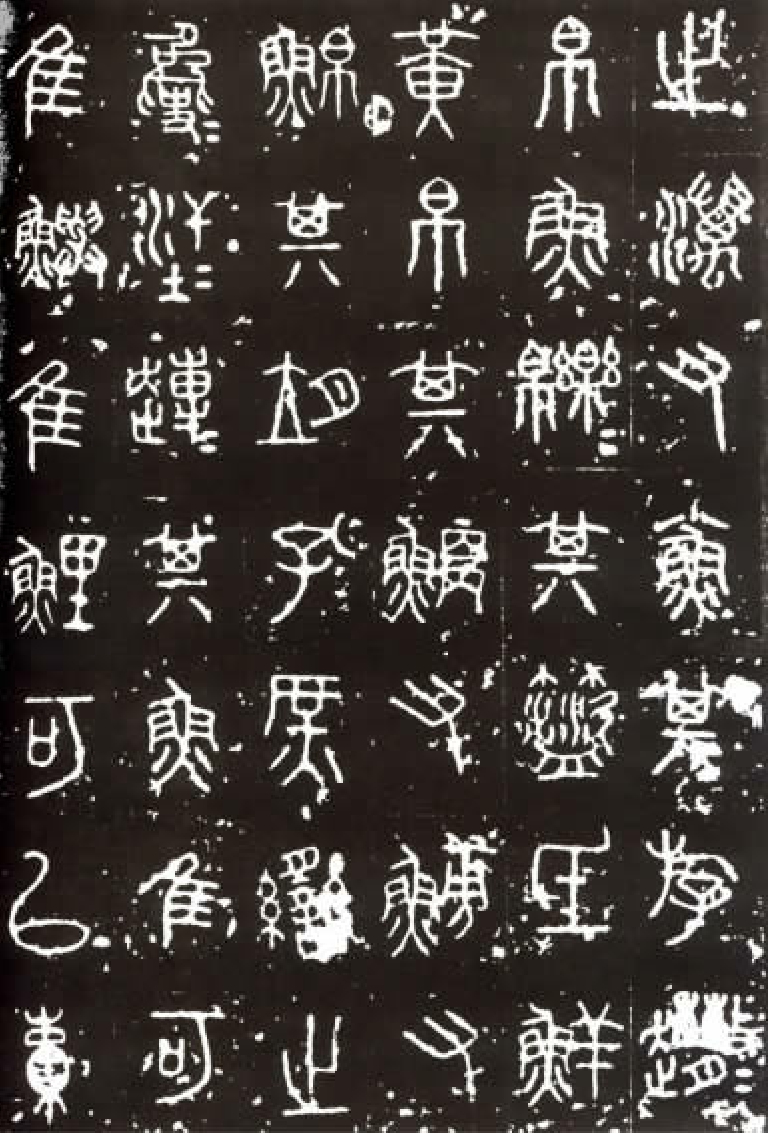 之澫又鯊其斿趣=
帛魚皪=其盜氐鮮
黃帛其鯾又鰟又
鮊其孔庶臠之
毚=汪=其魚隹可
隹鱮隹鯉可以橐